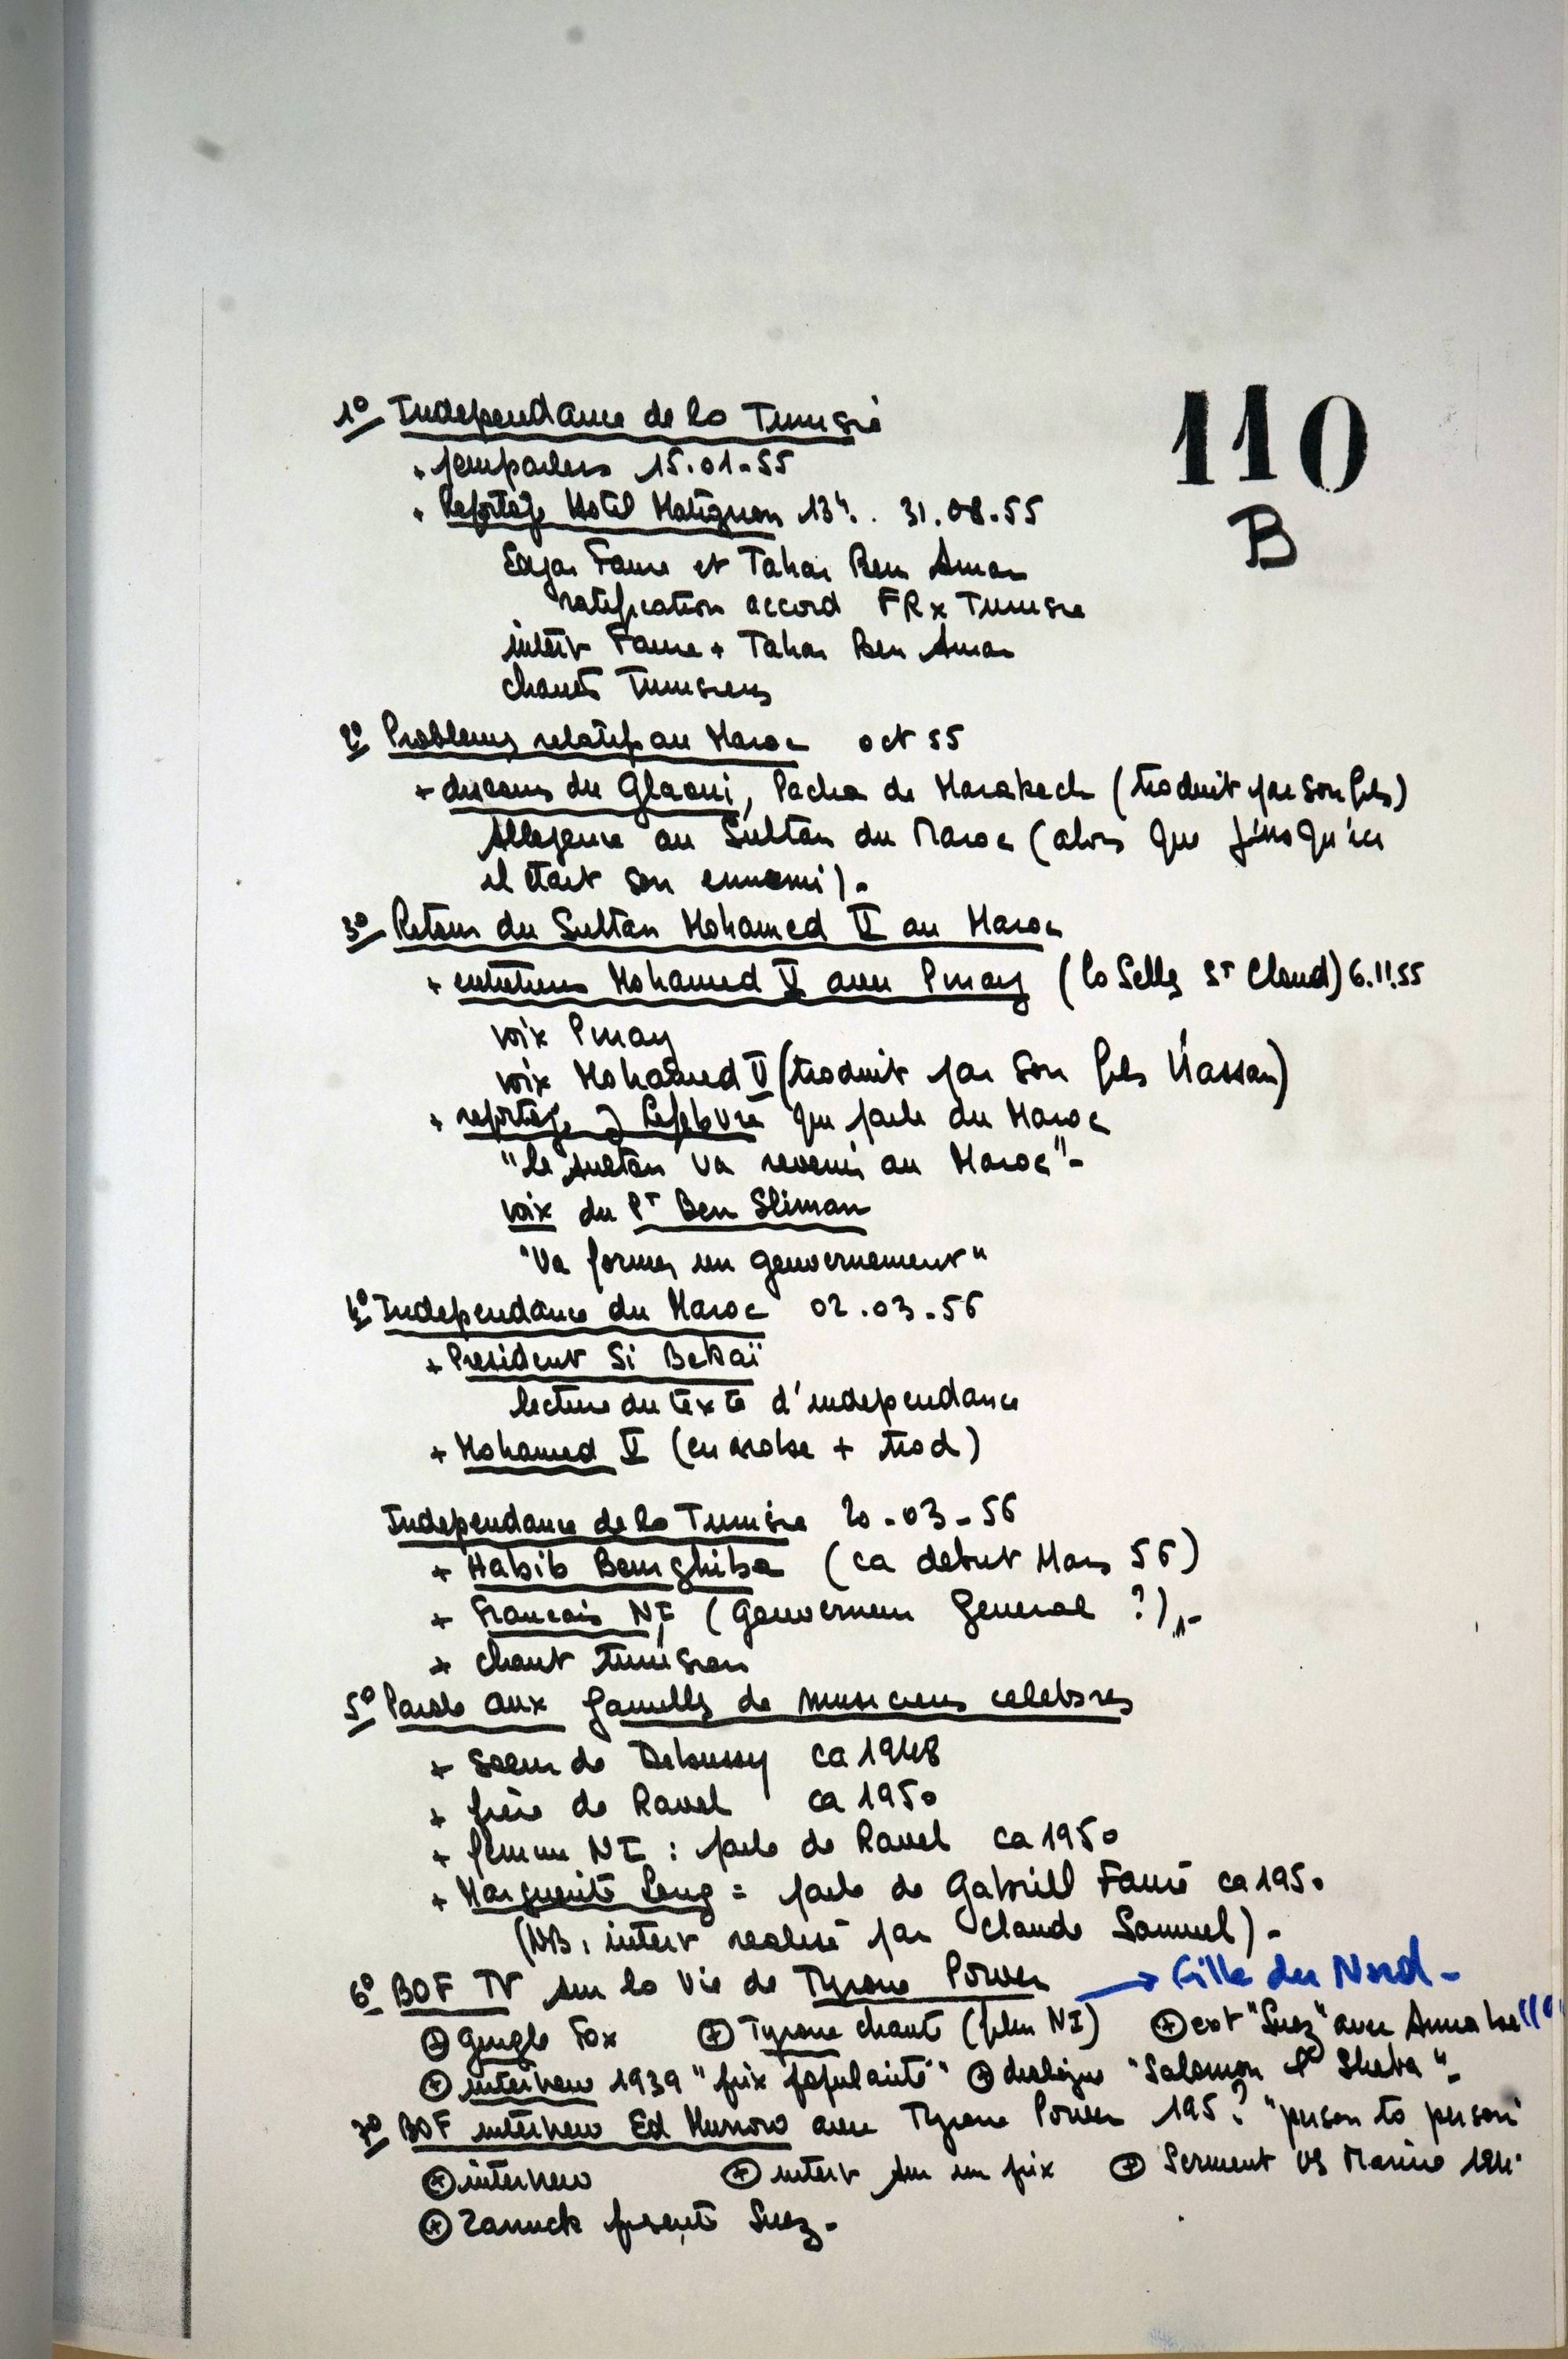 110
B
1º Independance de la Tunisie
+ pourparlers 15.01.55
+ Reportage Hotel Matignon 13h. 31.08.55
Edgar Faure et Tahar Ben Amar
ratification accord FR x Tunisie
interv Faure + Tahar Ben Amar
chants Tunisiens
2º Problemes relatifs au Maroc oct 55
+ discours du Glaoui, Pacha de Marakech (traduit par son fils)
Allegence au Sultan du Maroc (alors que jusqu'ici
il etait son ennemi).
3º Retour du Sultan Mohamed V au Maroc
+ entretiens Mohamed V avec Pinay (la Selle St Cloud) 6.11.55
voix Pinay
voix Mohamed V (traduit par son fils Hassan)
+ reportage J Lefebvre qui parle du Maroc
"le sultan va revenir au Maroc"-
voix du Pt Ben Sliman
"Va former un gouvernement"
4º Independance du Maroc 02.03.56
+ President Si Bekaï
lecture du texte d'independance
+ Mohamed V (en arabe + trad)
Independance de la Tunisie 20-03-56
+ Habib Bourghiba (ca debut Mars 56)
+ Francais NI (Gouverneur General ?)
+ chant tunisien
5º Parole aux familles de musiciens celebres
+ soeur de Debussy ca 1948
+ frère de Ravel ca 1950
+ femme NI : parle de Ravel ca 1950
+ Marguerite Long = parle de Gabriell Fauré ca 1950
(NB, interv realisé par Claude Samuel).
6º BOF TV sur la Vie de Tyrone Power → Fille du Nord-
+ gingle Fox + Tyrone chante (film NI) + ext "Suez" avec Annabella
+ interview 1939 "prix popularité" + dialogue "Salomon & Sheba"-
7º BOF interview Ed Murrow avec Tyrone Power 195? "person to person"
+ interview + interv sur un prix + Serment US Marine 194.
+ Zanuck presente Suez-